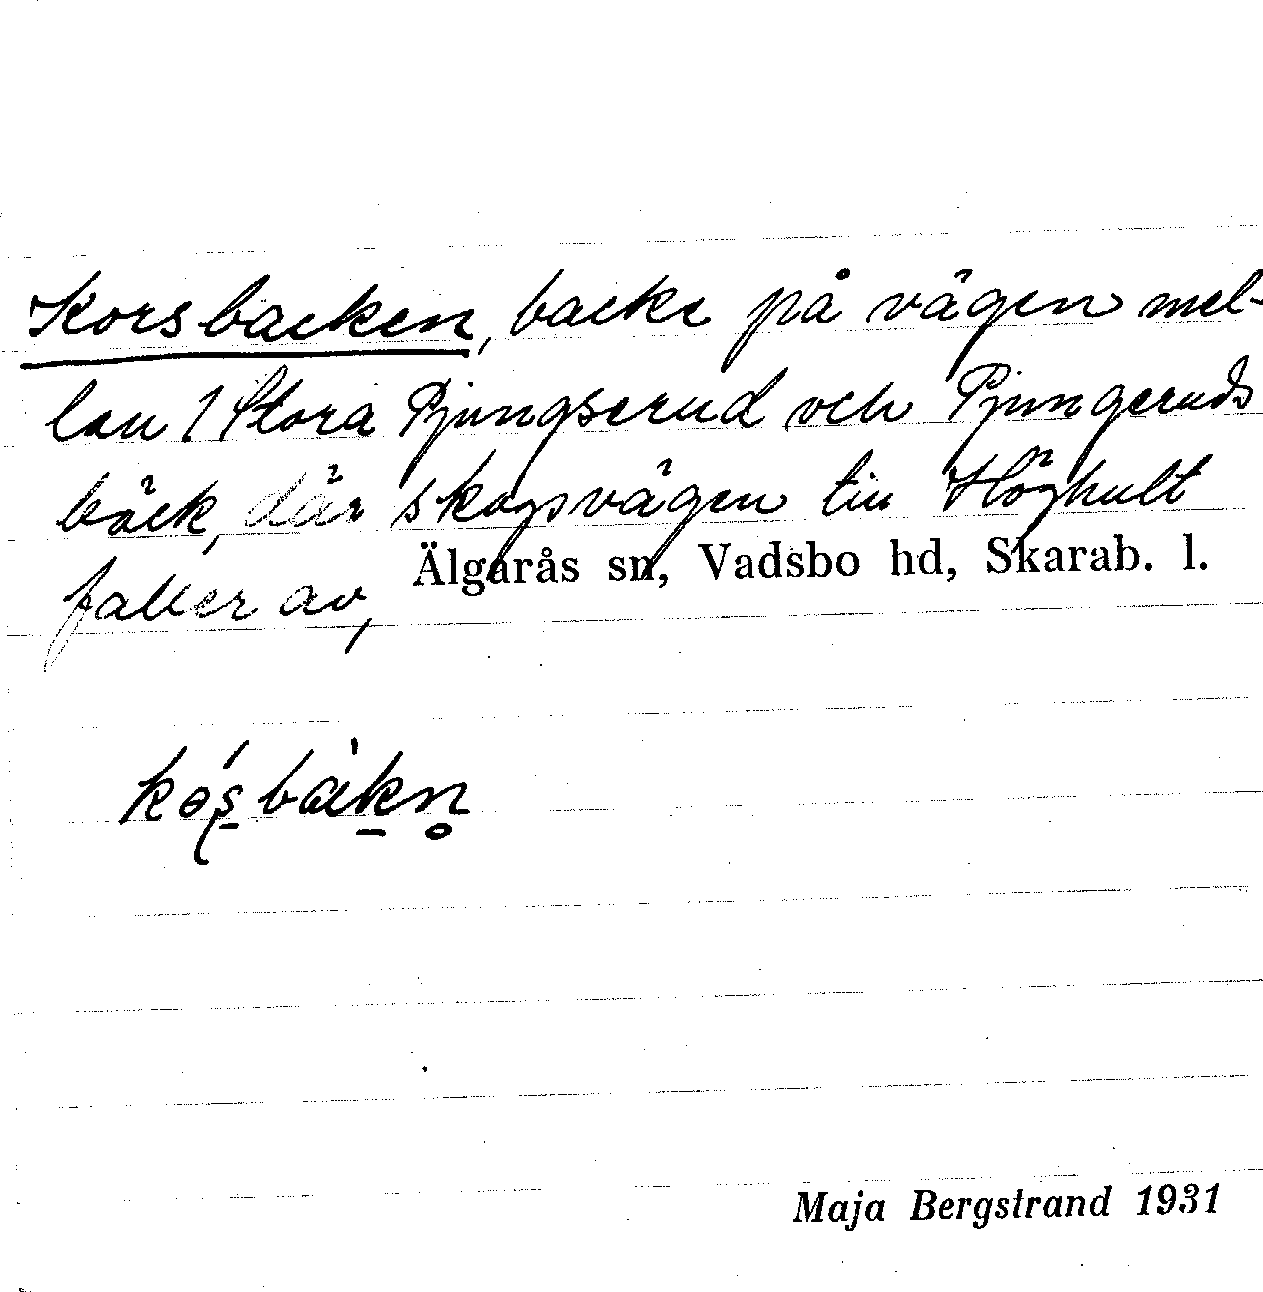 Korsbacken, backe på vägen mel-
lan 1 Stora Pjungserud och Pjungeruds
bäck, där skogsvägen till Höghult
faller av,
Älgarås sn, Vadsbo hd, Skarab. l.
Maja Bergstrand 1931